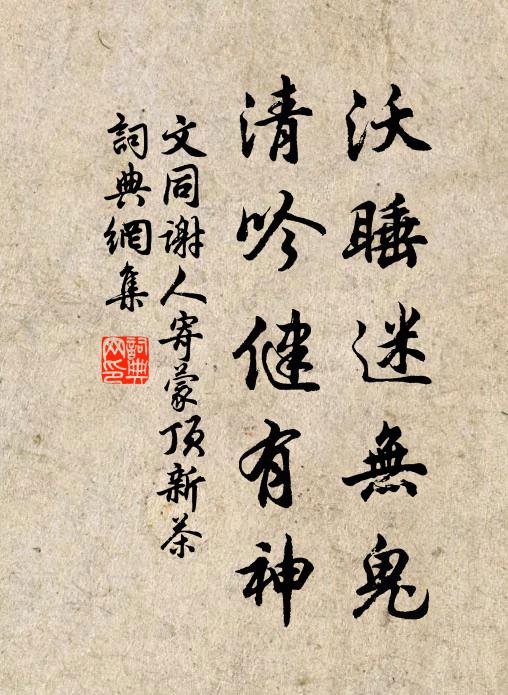 沃睡迷無鬼
清吟健有神
文同謝人寄蒙頂新茶
詞典網集
詞典
網印